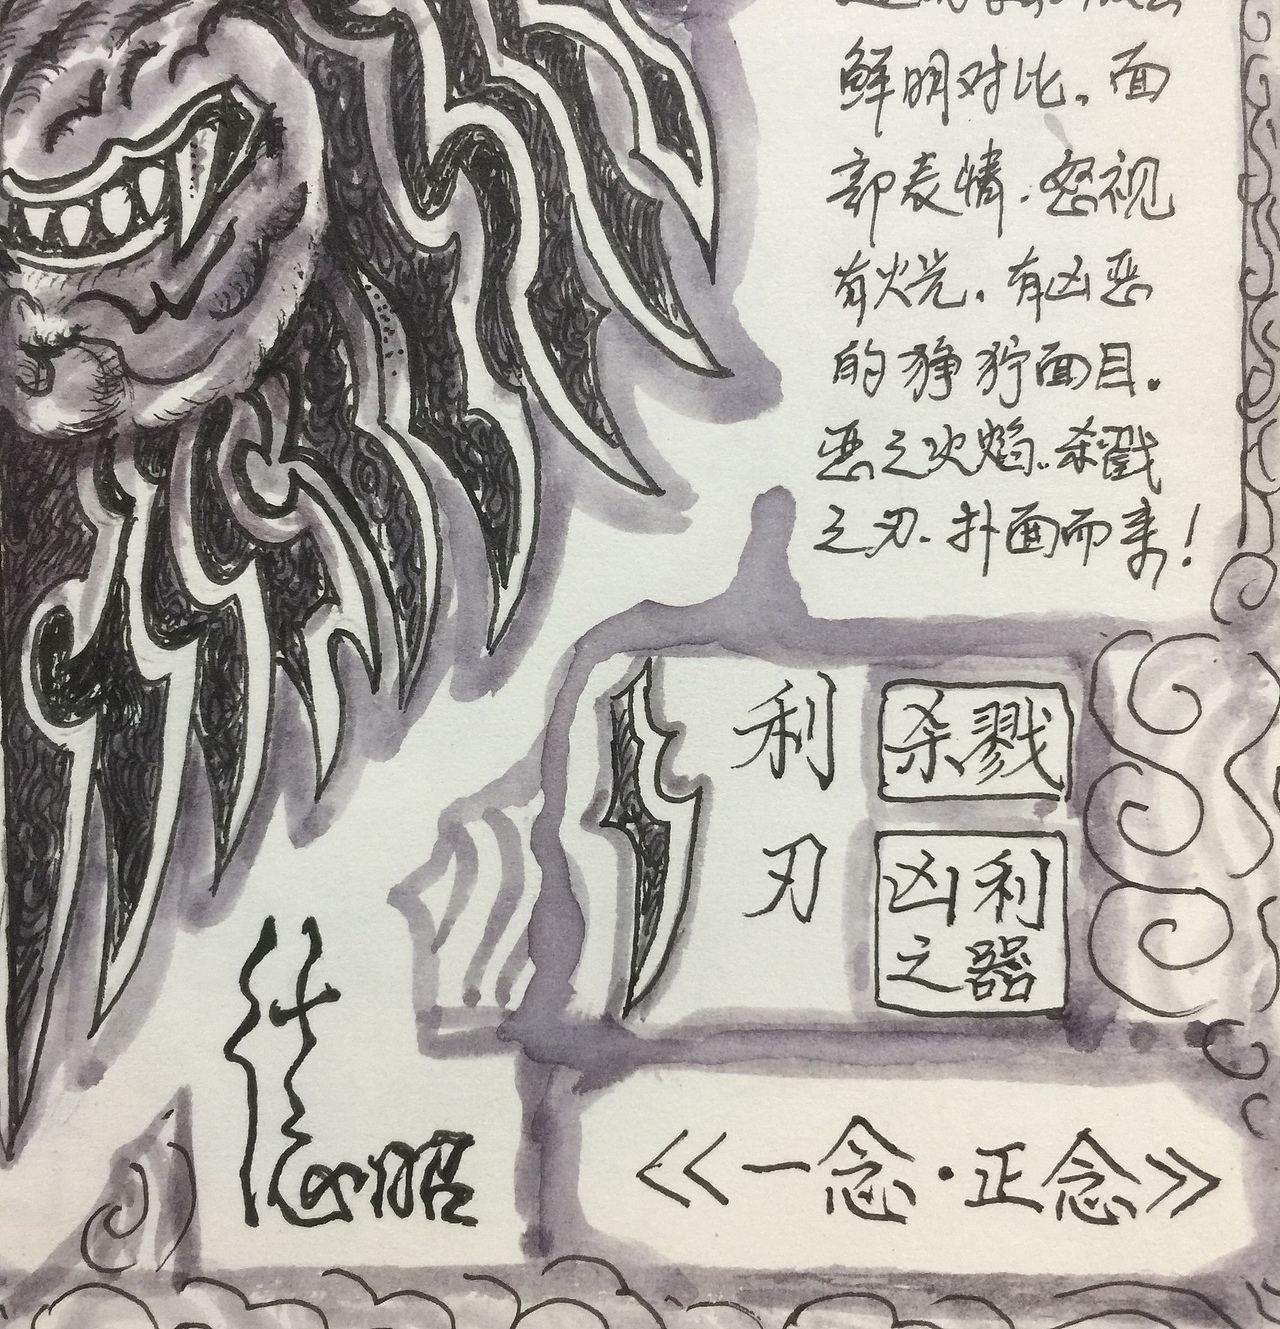 鲜明对比，面
部表情．怒视
有火光．有凶恶
的狰狞面目．
恶之火焰．杀戮
之刃．扑面而来！
利刃
杀戮
凶利
之器
《一念·正念》